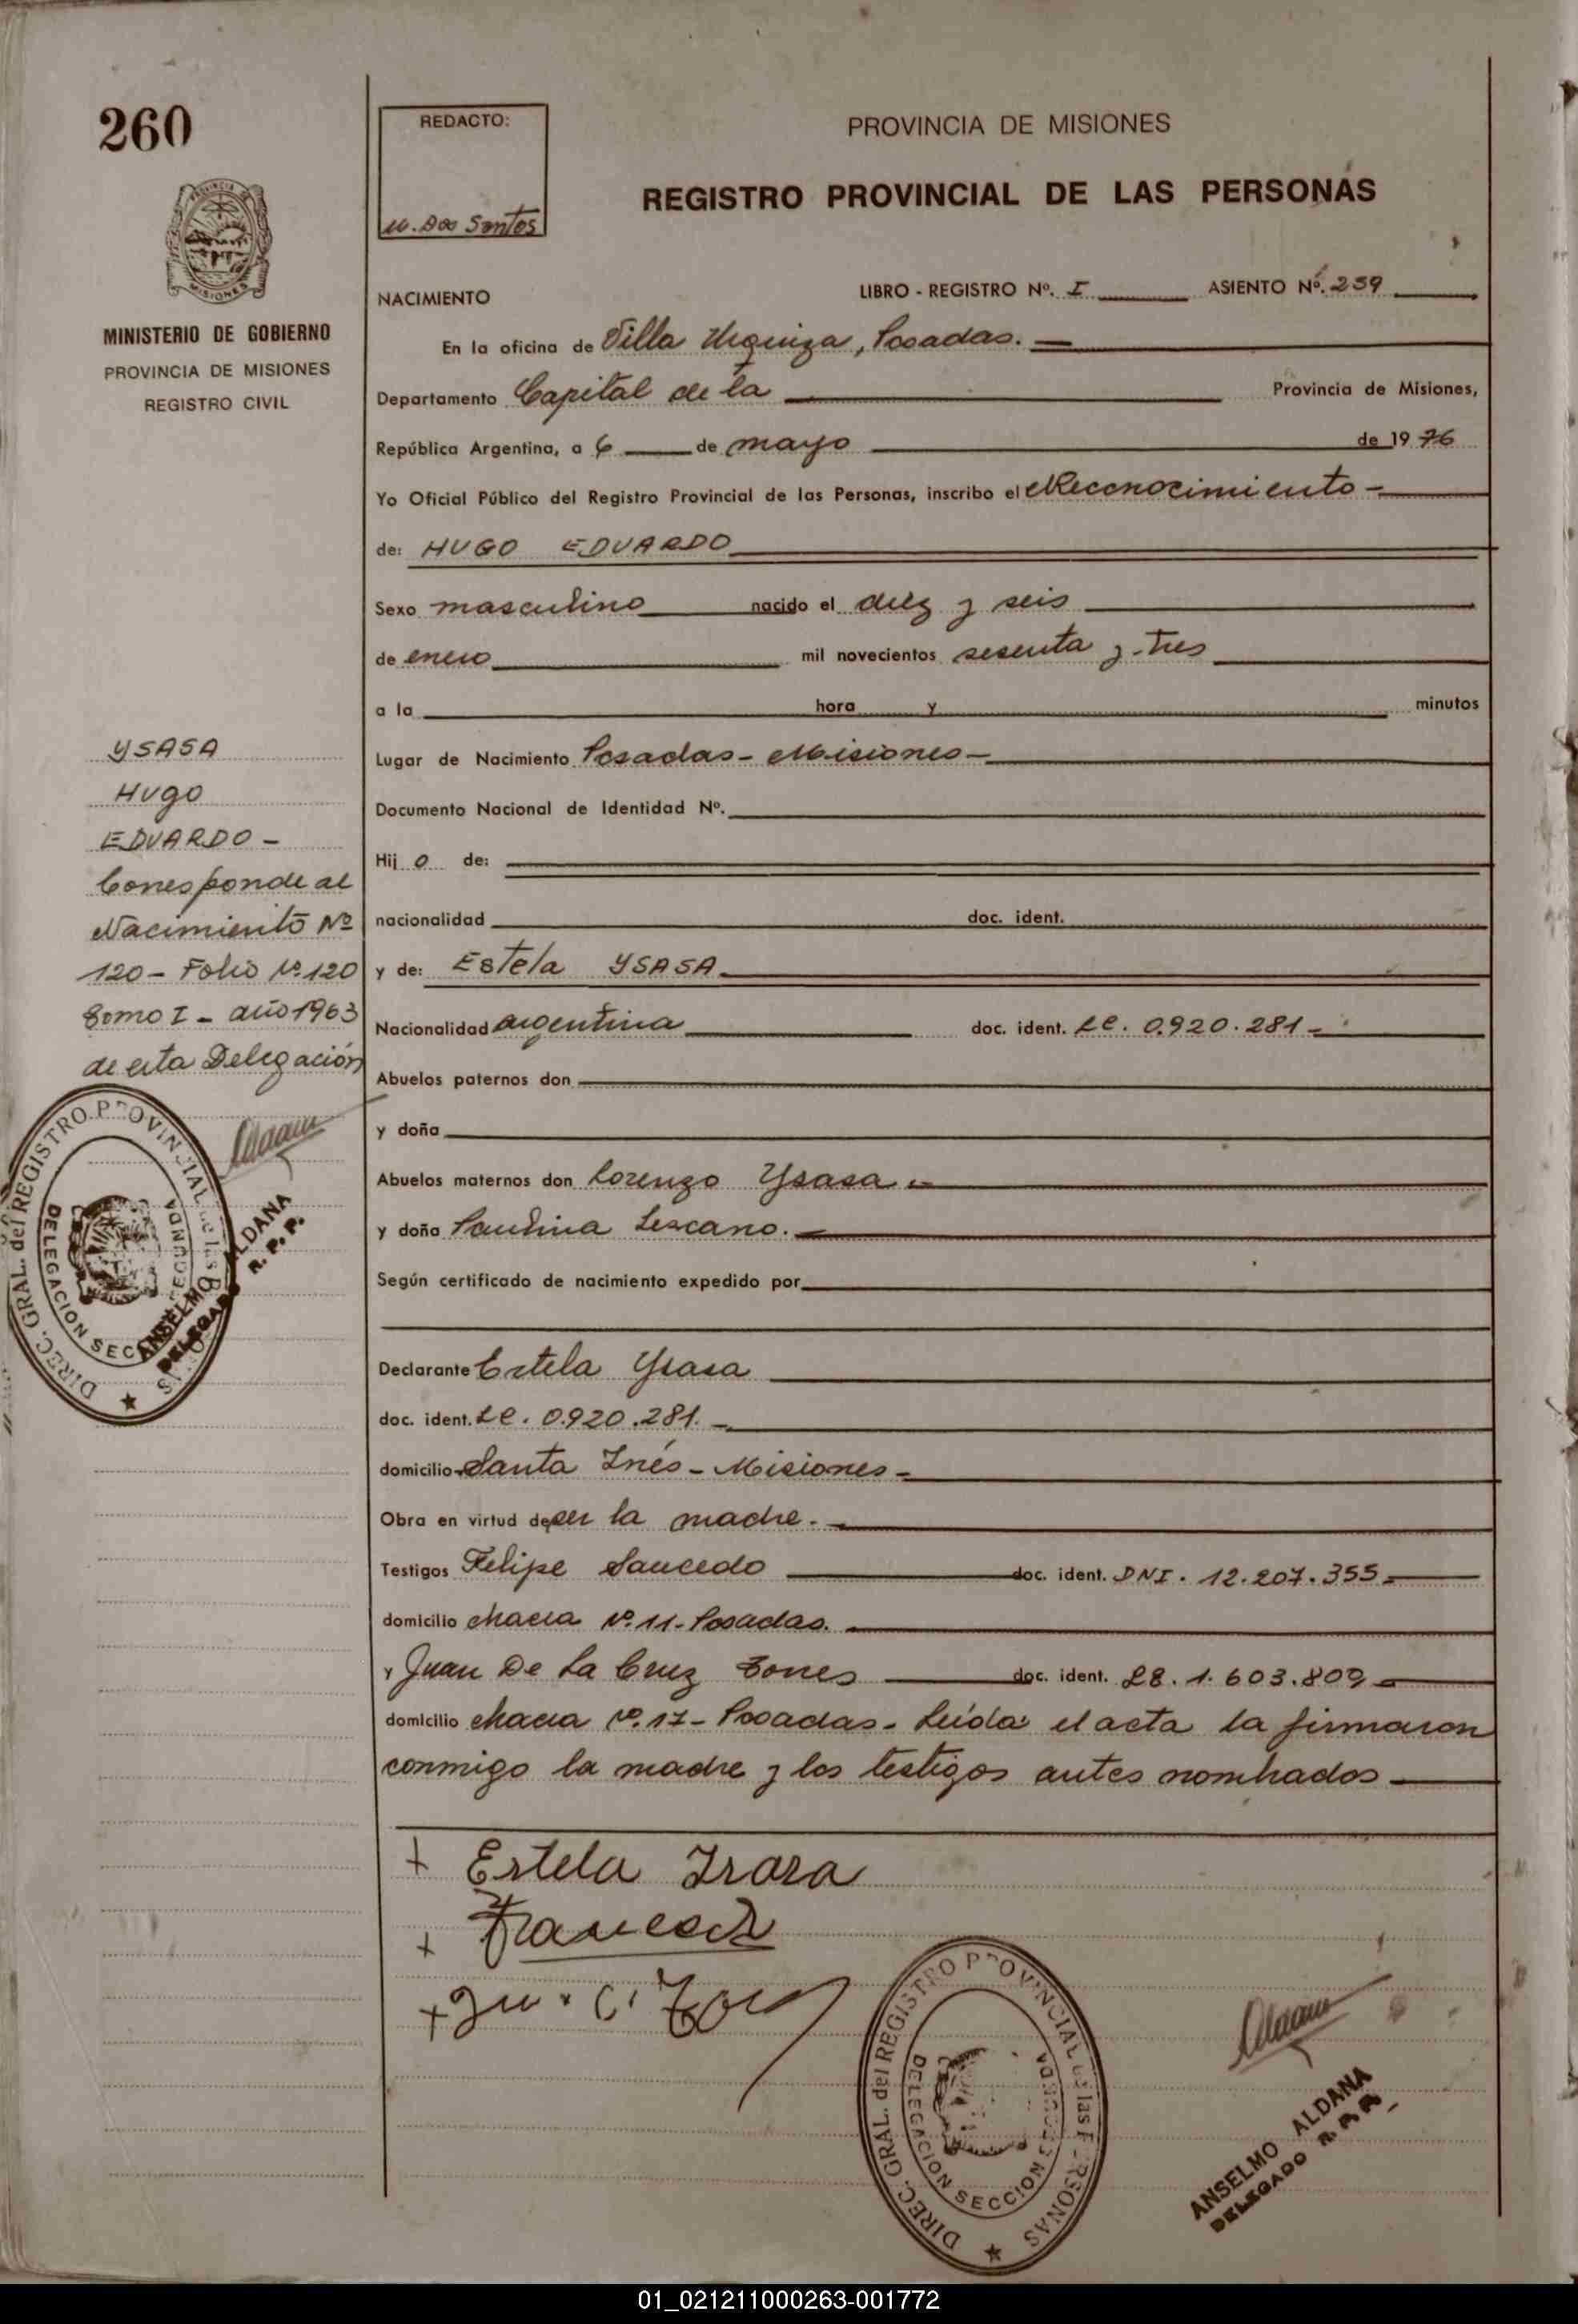 260
REDACTO:
M. Dos Santos
PROVINCIA DE MISIONES
REGISTRO PROVINCIAL DE LAS PERSONAS
MISIONES
MINISTERIO DE GOBIERNO
PROVINCIA DE MISIONES
REGISTRO CIVIL
NACIMIENTO
LIBRO - REGISTRO Nº. I ASIENTO Nº. 259
En la oficina de Villa Urquiza, Posadas.
Departamento Capital de la Provincia de Misiones,
República Argentina, a 6 de mayo de 1976
Yo Oficial Público del Registro Provincial de las Personas, inscribo el Reconocimiento
de: HUGO EDUARDO
Sexo masculino nacido el diez y seis
de enero mil novecientos sesenta y tres
a la hora y minutos
Lugar de Nacimiento Posadas - Misiones -
Documento Nacional de Identidad Nº.
Hij o de:
nacionalidad doc. ident.
y de: Estela YSASA
Nacionalidad argentina doc. ident. LC. 0.920.281 -
Abuelos paternos don
y doña
Abuelos maternos don Lorenzo Ysasa.
y doña Paulina Lezcano.
Según certificado de nacimiento expedido por
Declarante Estela Ysasa
doc. ident. LC. 0.920.281. -
domicilio Santa Inés - Misiones -
Obra en virtud de ser la madre. -
Testigos Felipe Saucedo doc. ident. DNI. 12.207.355 -
domicilio chacra Nº. 11 - Posadas.
y Juan De La Cruz Torres doc. ident. LE. 1.603.809 -
domicilio chacra Nº. 17 - Posadas. Leída el acta la firmaron
conmigo la madre y los testigos antes nombrados
YSASA
Hugo
EDUARDO -
Corresponde al
Nacimiento Nº
120 - Folio Nº. 120
Tomo I - año 1963
de esta Delegación
DIREC. GRAL. del REGISTRO PROVINCIAL de las PERSONAS
DELEGACION SECCION SEGUNDA
ANSELMO ALDANA
DELEGADO R. P. P.
+ Estela Isasa
+
+
DIREC. GRAL. del REGISTRO PROVINCIAL de las PERSONAS
DELEGACION SECCION SEGUNDA
ANSELMO ALDANA
DELEGADO R. P. P.
01_021211000263-001772